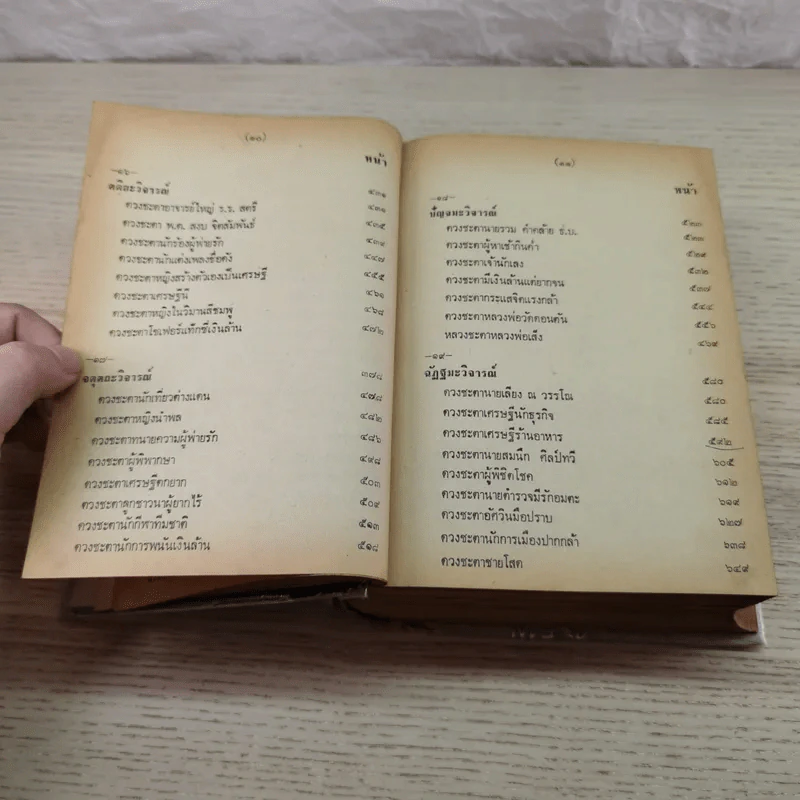 (๑๐)
หน้า
—๑๖—
ตติยะวิจารณ์ ๔๓๑
ดวงชะตาอาจารย์ใหญ่ ร.ร. สตรี ๔๓๑
ดวงชะตา พ.ต. สงบ จิตสัมพันธ์ ๔๓๕
ดวงชะตานักร้องผู้พ่ายรัก ๔๓๙
ดวงชะตานักแต่งเพลงชื่อดัง ๔๔๗
ดวงชะตาหญิงสร้างตัวเองเป็นเศรษฐี ๔๕๕
ดวงชะตาเศรษฐินี ๔๖๑
ดวงชะตาหญิงในวิมานสีชมพู ๔๖๘
ดวงชะตาโชเฟอร์แท็กซี่เงินล้าน ๔๗๒
—๑๗—
จตุตถะวิจารณ์ ๓๗๘
ดวงชะตานักเที่ยวต่างแดน ๔๗๘
ดวงชะตาหญิงนำพล ๔๘๒
ดวงชะตาทนายความผู้พ่ายรัก ๔๘๖
ดวงชะตาผู้พิพากษา ๔๙๘
ดวงชะตาเศรษฐีตกยาก ๕๐๓
ดวงชะตาลูกชาวนาผู้ยากไร้ ๕๐๙
ดวงชะตานักกีฬาทีมชาติ ๕๑๓
ดวงชะตานักการพนันเงินล้าน ๕๑๘
(๑๑)
หน้า
—๑๘—
ปัญจมะวิจารณ์ ๕๒๓
ดวงชะตานายรวม คำคล้าย ธ.บ. ๕๒๓
ดวงชะตาผู้หาเช้ากินค่ำ ๕๒๙
ดวงชะตาเจ้านักเลง ๕๓๒
ดวงชะตามีเงินล้านแต่ยากจน ๕๓๗
ดวงชะตากระแสจิตแรงกล้า ๕๔๔
ดวงชะตาหลวงพ่อวัดดอนตัน ๕๕๖
หลวงชะตาหลวงพ่อเส็ง ๔๖๙
—๑๙—
ฉัฏฐมะวิจารณ์ ๕๘๐
ดวงชะตานายเลียง ณ วรรโณ ๕๘๐
ดวงชะตาเศรษฐีนักธุรกิจ ๕๘๕
ดวงชะตาเศรษฐีร้านอาหาร ๕๙๒
ดวงชะตานายสมนึก ศิลป์ทวี ๖๐๕
ดวงชะตาผู้พิชิตโชค ๖๑๒
ดวงชะตานายตำรวจมีรักอมตะ ๖๑๙
ดวงชะตาอัศวินมือปราบ ๖๒๗
ดวงชะตานักการเมืองปากกล้า ๖๓๘
ดวงชะตาชายโสด ๖๔๙